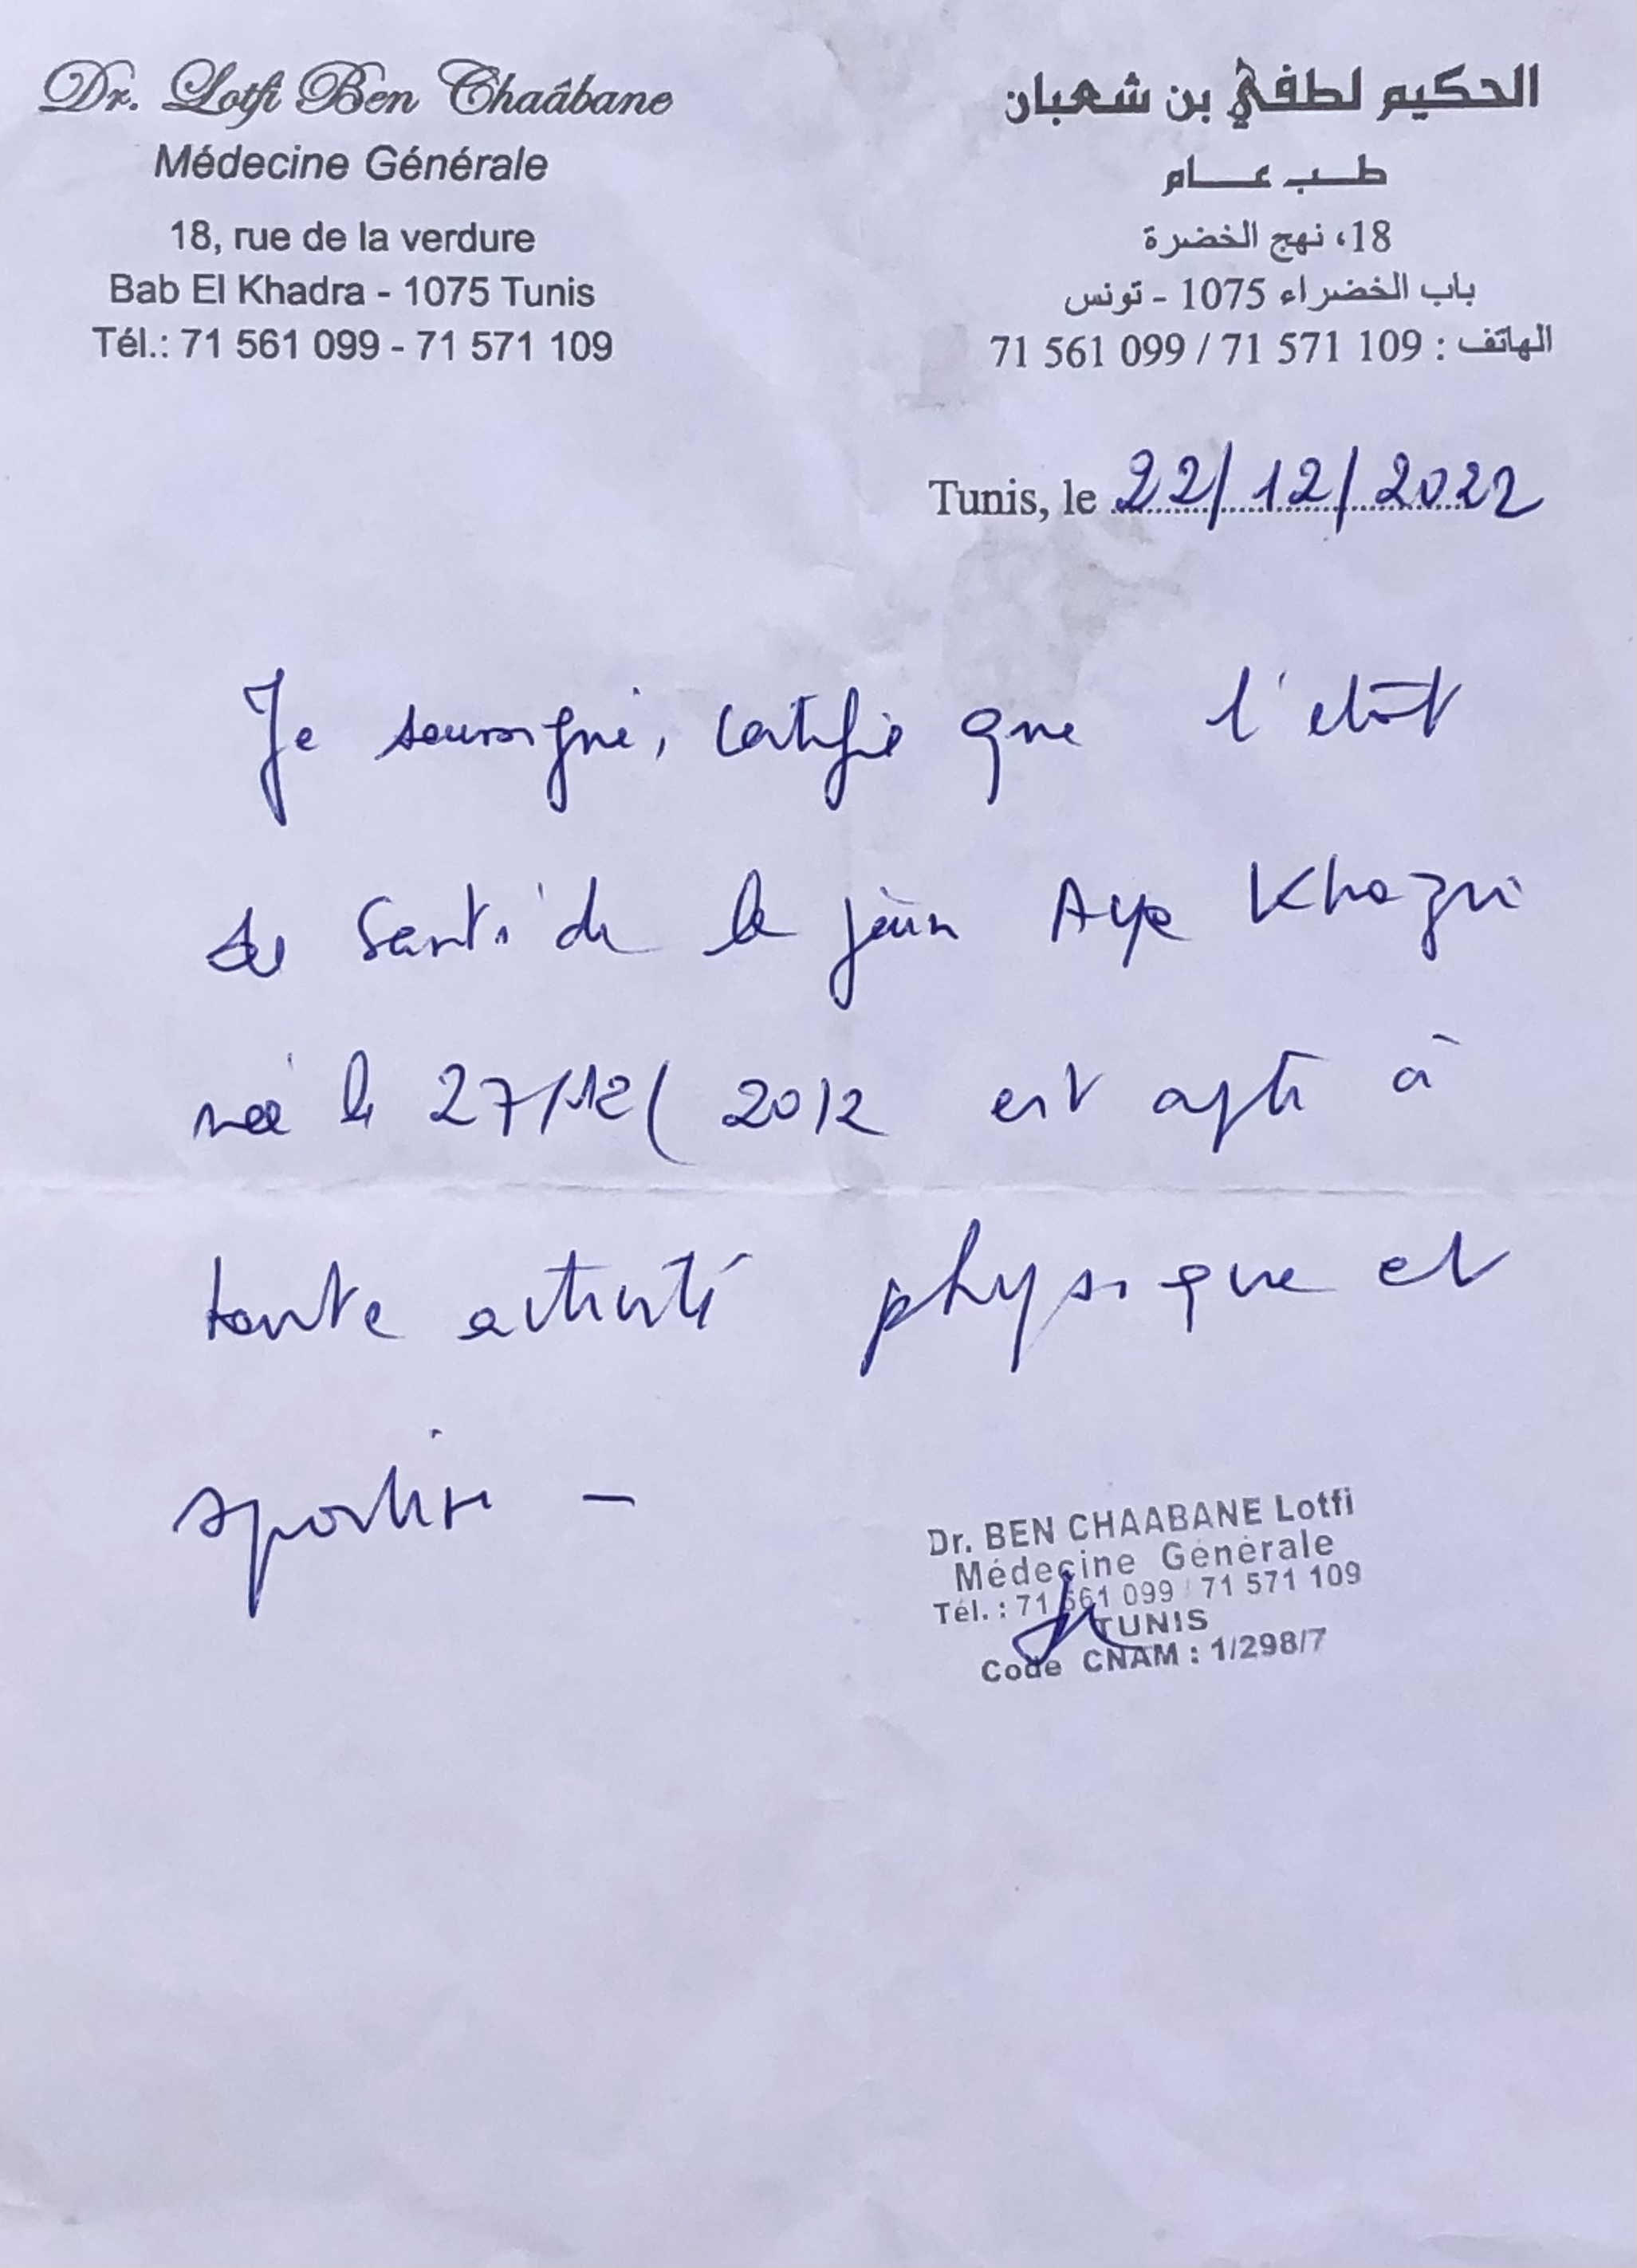 Dr. Lotfi Ben Chaâbane
Médecine Générale
18, rue de la verdure
Bab El Khadra - 1075 Tunis
Tél.: 71 561 099 - 71 571 109
الحكيم لطفي بن شعبان
طب عام
18، نهج الخضرة
باب الخضراء 1075 - تونس
الهاتف : 71 561 099 / 71 571 109
Tunis, le 22/12/2022
Je soussigné, certifie que l'etat
de Santé de la jeune Aya Khazri
née le 27/12/2012 est apte à
toute activité physique et
sportive -
Dr. BEN CHAABANE Lotfi
Médecine Générale
Tél. : 71 561 099 / 71 571 109
TUNIS
Code CNAM : 1/298/7